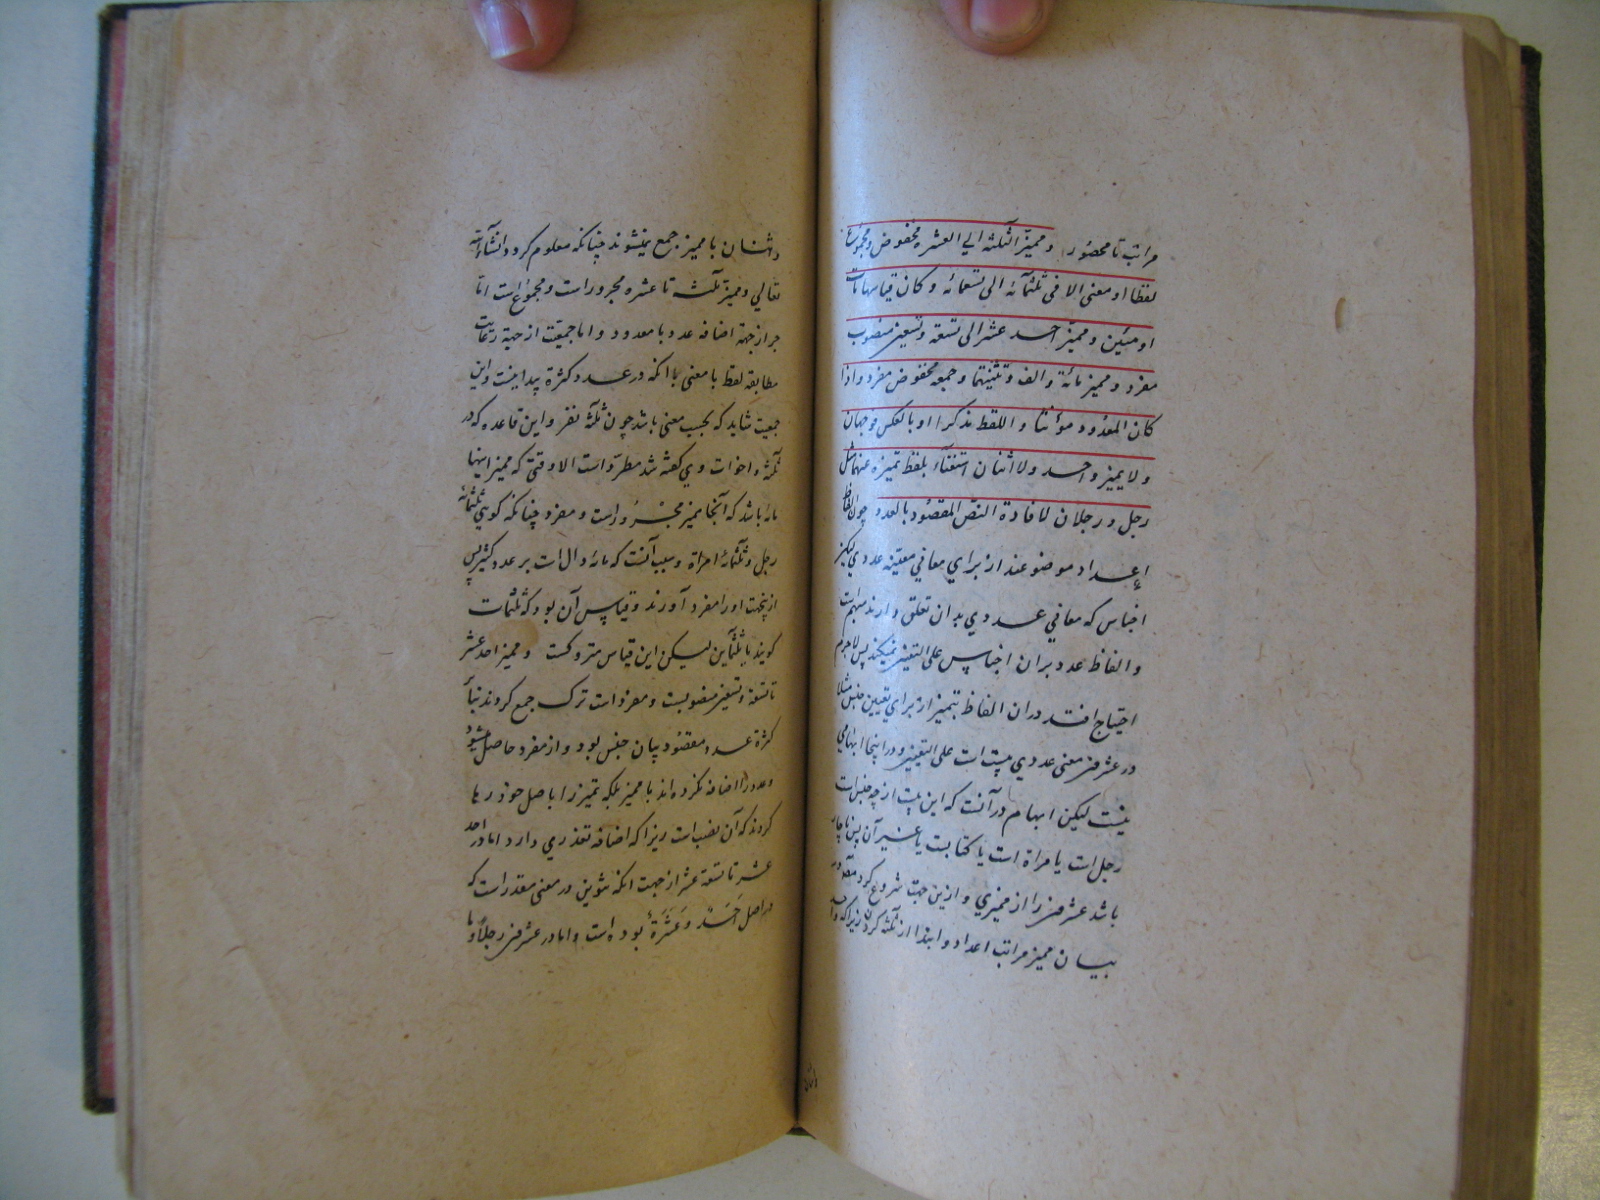 مراتب نا محصور و ممیز الثلثة الی العشره مخفوض و مجموع
لفظا او معنی الا فی ثلثمائة الی تسعمائة و کان قیاسها مآت
او مئین و ممیز احد عشر الی تسعة و تسعین منصوب
مفرد و ممیز مائة و الف و تثنیتهما و جمعه مخفوض مفرد و اذا
کان المعدود مؤنثا و اللفظ مذکرا او بالعکس فوجهان
و لا یمیز واحد و لا اثنان استغناء بلفظ تمیزه عنهما مثل
رجل و رجلان لافادة النص المقصود بالعدد چون الفاظ
اعداد موضوعند از برای معانی معینه عددی لیکن
اجناس که معانی عددی بدان تعلق دارند مبهم است
و الفاظ عدد بران اجناس علی التعیین نمیکند پس لاجرم
احتیاج افتد دران الفاظ بتمیز از برای تعیین جنس مثلا
در عشرین معنی عددی بیست است علی التعیین و در اینجا ابهامی
نیست لیکن ابهام در آنست که این بیست از چه جنس است
رجل است یا مراة است یا کتابست یا غیر آن پس ناچار
باشد عشرین را از ممیزی و ازین جهت شروع کرد مصنف در
بیان ممیز مراتب اعداد و ابتدا از ثلثه کرد زیرا که واحد
و اثنان با ممیز جمع نمیشوند چنانکه معلوم کردد انشاء الله
تعالی و ممیز ثلثه تا عشره مجرور است و مجموع است اما
جر از جهة اضافه عدد با معدود و اما جمعیت از جهة رعایت
مطابقه لفظ با معنی با آنکه در عدد کثرة پیدا نیست و این
جمعیت شاید که بحسب معنی باشد چون ثلثة نفر و این قاعده که در
ثلثه و اخوات وی کفته شد مطرد است الا وقتی که ممیز اینها
مائه باشد که آنجا ممیز مجرور است و مفرد چنانکه کویی ثلثمائة
رجل و ثلثمائة امراة و سبب آنست که مائه دال است بر عدد کثیر پس
ازینجهت او را مفرد آورند و قیاس آن بود که ثلثمات
کویند یا ثلثمأین لیکن این قیاس متروکست و ممیز احد عشر
تا تسعة و تسعین منصوبست و مفرد است ترک جمع کردند بنابر
کثرة عدد مقصود بیان جنس بود و از مفرد حاصل میشود
و عدد را اضافه نکرده اند با ممیز بلکه تمیز را باصل خود رها
کردند که آن نصب است زیرا که اضافه تعذری دارد اما در احد
عشر تا تسعة عشر از جهت انکه تنوین در معنی مقدر است که
در اصل أحد و عشرة بوده است و اما در عشرین رجلا و تا